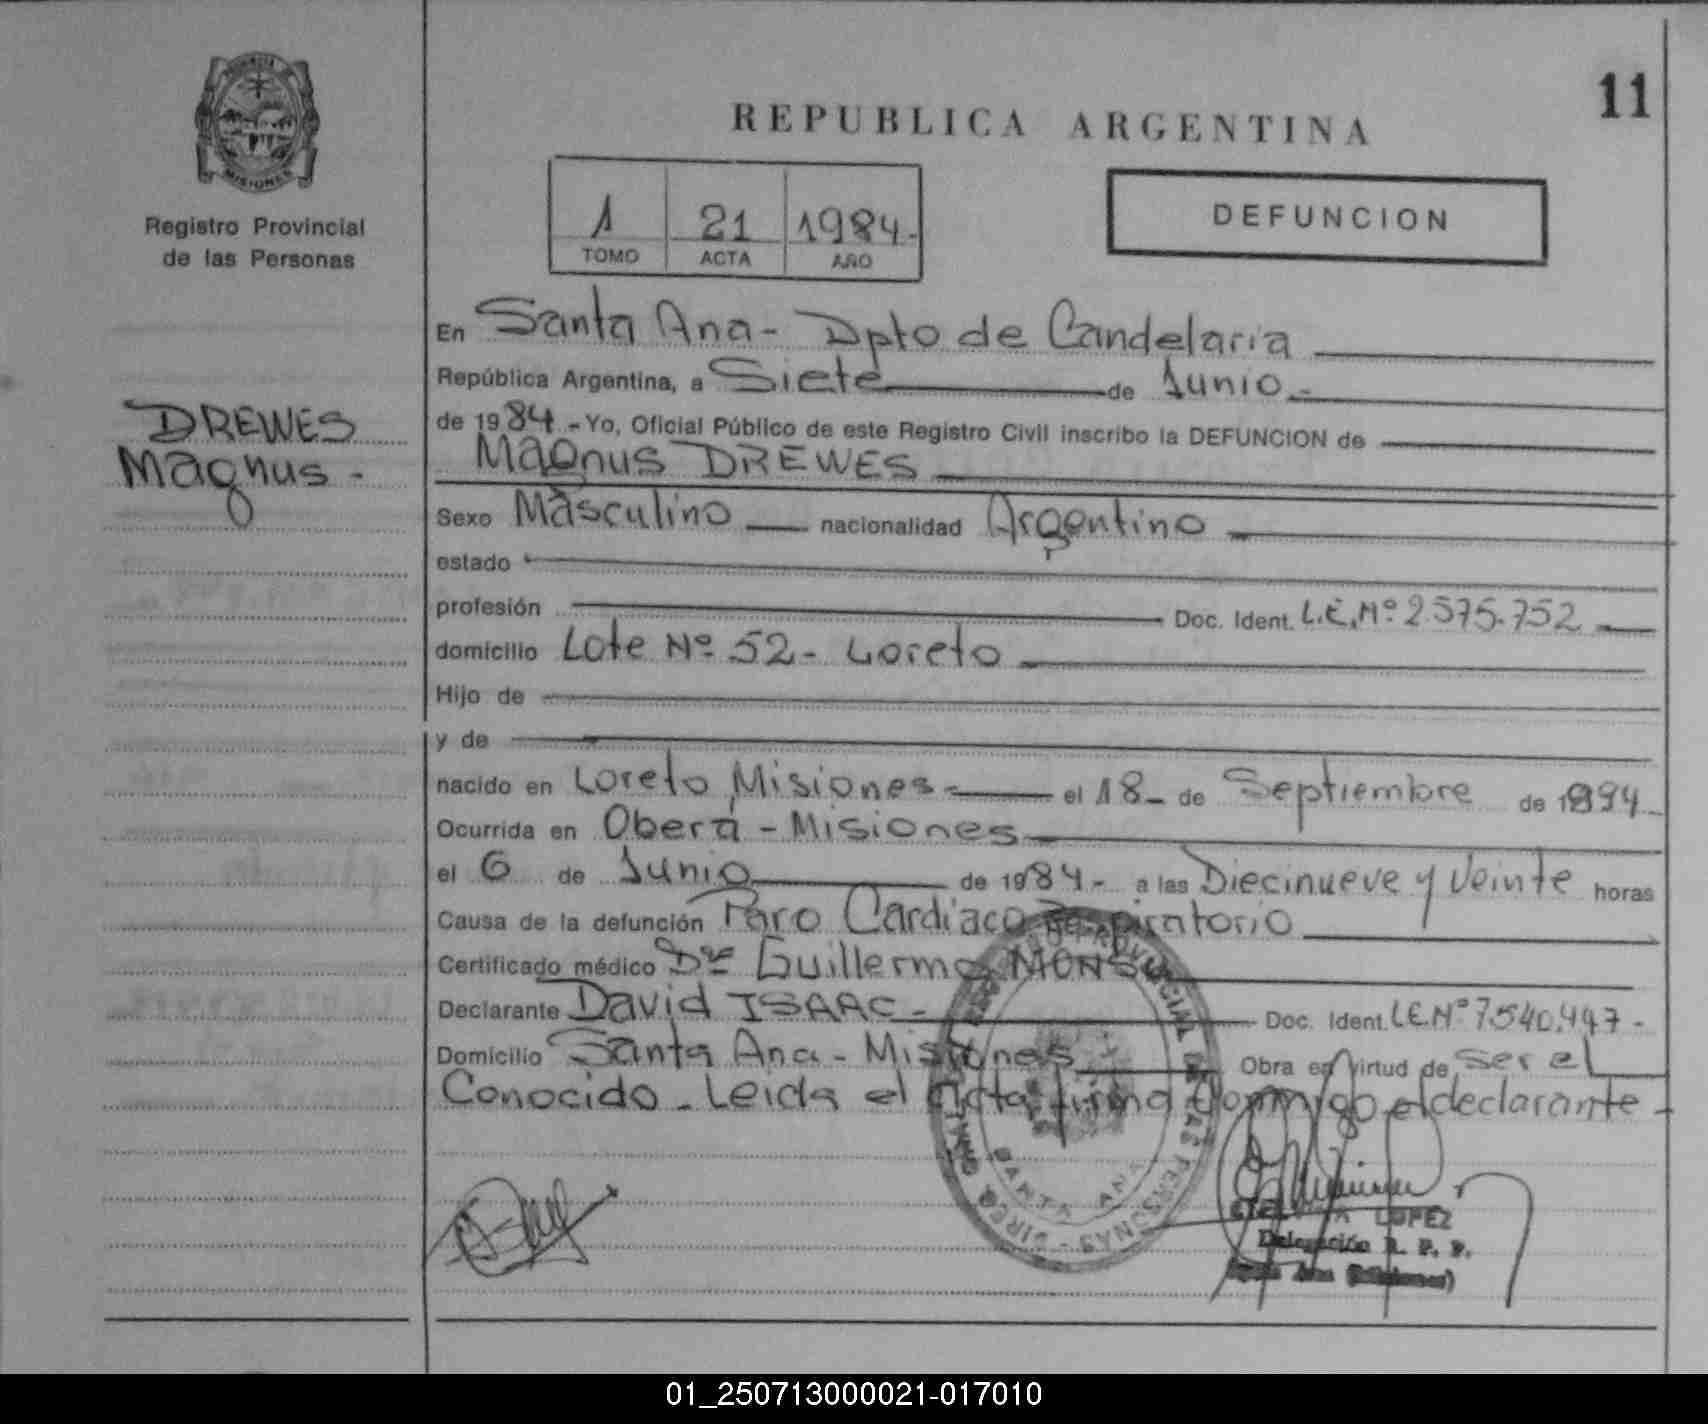 PROVINCIA DE
MISIONES
Registro Provincial
de las Personas
DREWES
Magnus -
11
REPUBLICA ARGENTINA
1 21 1984-
TOMO ACTA AÑO
DEFUNCION
En Santa Ana - Dpto de Candelaria
República Argentina, a Siete de Junio -
de 1984 - Yo, Oficial Público de este Registro Civil inscribo la DEFUNCION de
Magnus DREWES
Sexo Masculino nacionalidad Argentino
estado
profesión Doc. Ident. L.E. Nº 2.575.752
domicilio Lote Nº 52 - Loreto
Hijo de
y de
nacido en Loreto, Misiones - el 18 - de Septiembre de 1894 -
Ocurrida en Oberá - Misiones
el 6 de Junio de 1984 - a las Diecinueve y Veinte horas
Causa de la defunción Paro Cardiaco Respiratorio
Certificado médico Dr Guillermo
Declarante David ISAAC - Doc. Ident. L.E. Nº 7.540.447 -
Domicilio Santa Ana - Misiones Obra en virtud de Ser el
Conocido - Leida el Acta firma Conmigo el declarante -
SANTA ANA
LOPEZ
Delegación R. P. P.
Santa Ana (Misiones)
01_250713000021-017010